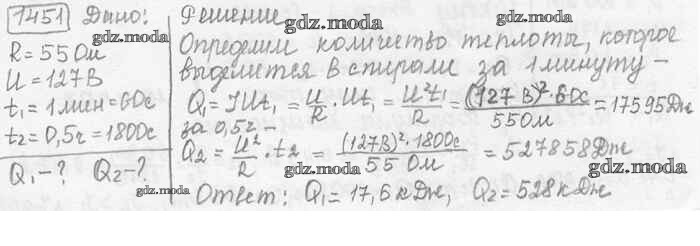 1451 Дано:
R = 55 Ом
U = 127 В
t₁ = 1 мин = 60с
t₂ = 0,5г = 1800с
Q₁ - ? Q₂ - ?
Решение
gdz.moda
gdz.moda
Определим количество теплоты, которое
gdz.moda
выделится в спирали за 1 минуту -
gdz.moda
Q₁ = IUt₁ = U/R · Ut₁ = U²t₁/R = (127 В)² · 60с / 55 Ом = 17595 Дж
gdz.moda
за 0,5г -
gdz.moda
Q₂ = U²/R · t₂ = (127В)² · 1800с / 55 Ом = 527858 Дж
gdz.moda
gdz.moda
gdz.moda
Ответ: Q₁ = 17,6 кДж, Q₂ = 528 кДж
gdz.moda
gdz.moda